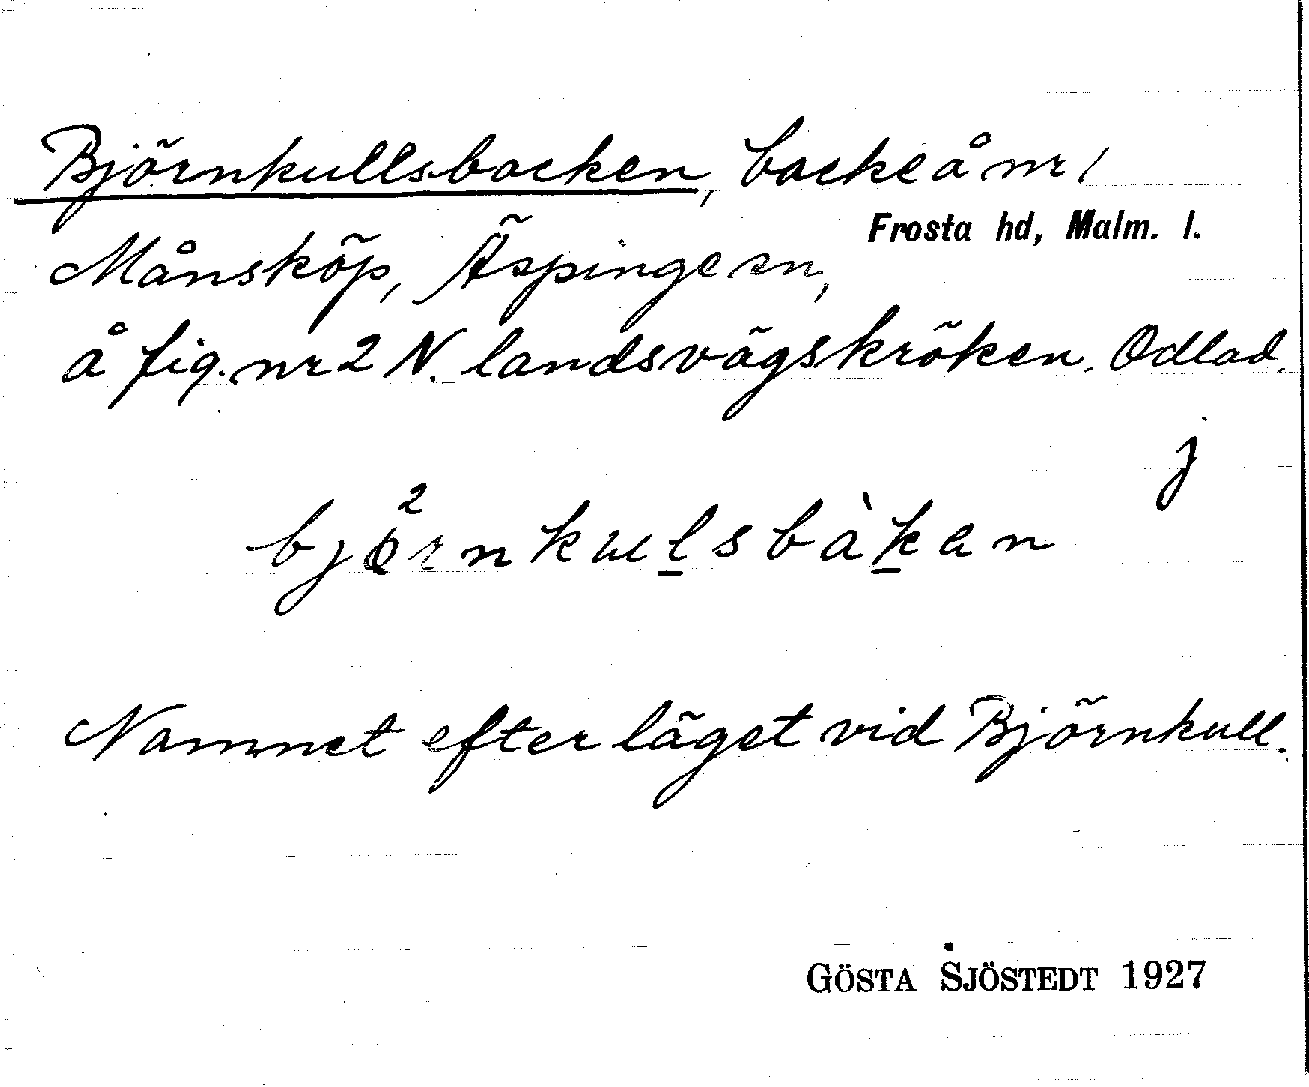 Björnkullsbacken, backe å nr 1
Frosta hd, Malm. l.
Månsköp, Äspinge sn,
å fig. nr 2 N. landsvägskröken. Odlad.
j
bjö²rnkulsbàkan
Namnet efter läget vid Björnkull.
GÖSTA SJÖSTEDT 1927